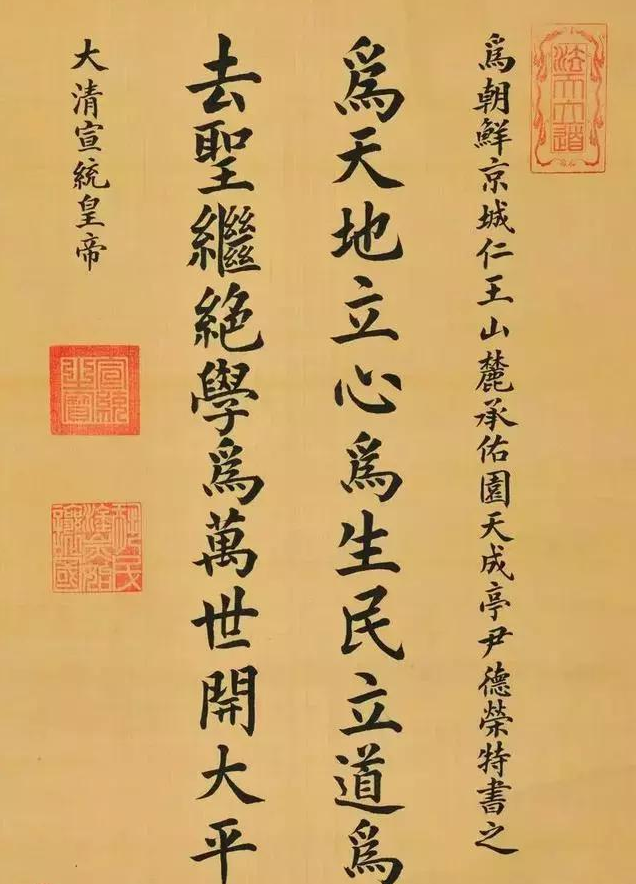 法天立道
爲朝鮮京城仁王山麓承佑園天成亭尹德榮特書之
爲天地立心爲生民立道爲
去聖繼絕學爲萬世開大平
大清宣統皇帝
宣統御寶